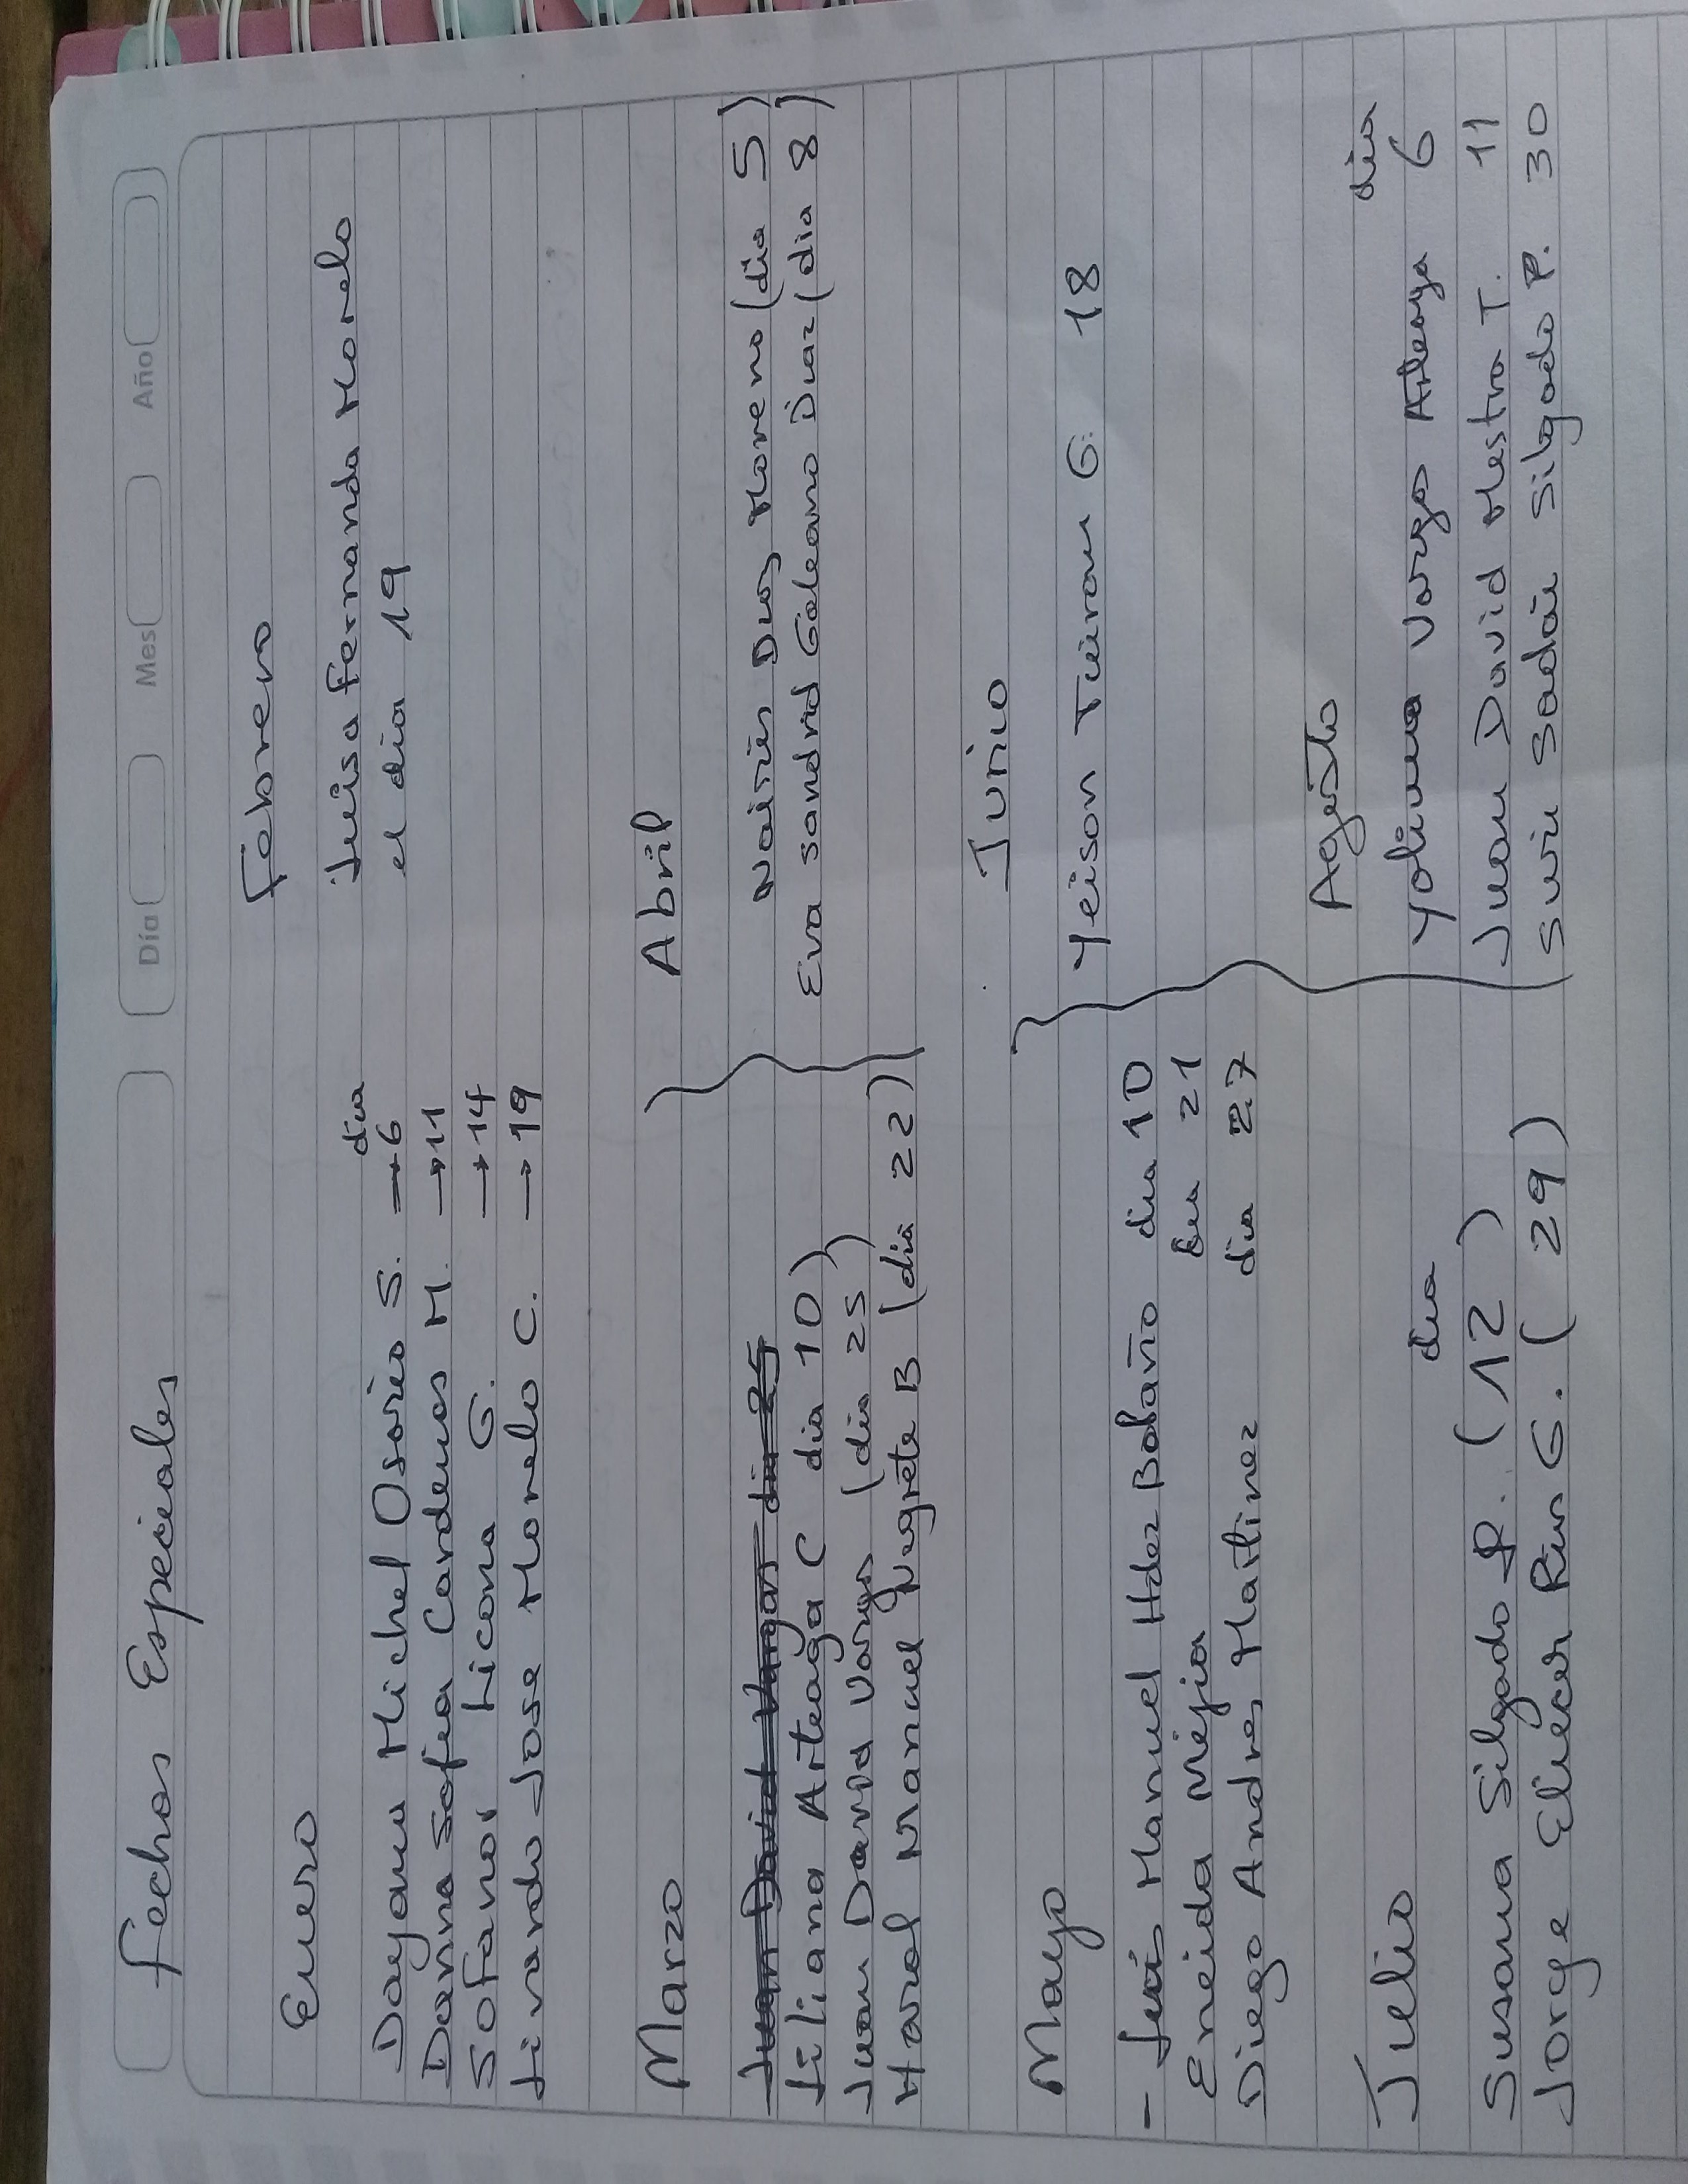 Fechas Especiales
Día Mes Año
Enero
día
Dayana Michel Osorio S. → 6
Danna Sofia Cardenas M. → 11
Sofanor Licona G. → 14
Livardo Jose Morelo C. → 19
Febrero
Luisa Fernanda Morelo
el dia 19
Marzo
Juan David Vargas dia 25
Liliana Arteaga C dia 10)
Juan David Vargas (dia 25)
Harol Manuel Negrete B (dia 22)
Abril
Nairis Diaz Moreno (dia 5)
Eva Sandrid Galeano Diaz (dia 8)
Mayo
- Luis Manuel Hdez Bolaño dia 10
Eneida Mejia dia 21
Diego Andres Martinez dia 27
Junio
Yeison Tuiran G. 18
Julio
dia
Susana Silgado P. (12)
Jorge Eliecer Rios G. (29)
Agosto
dia
Yolima Vargas Arteaga 6
Juan David Mestra T. 11
Sadai Silgado P. 30